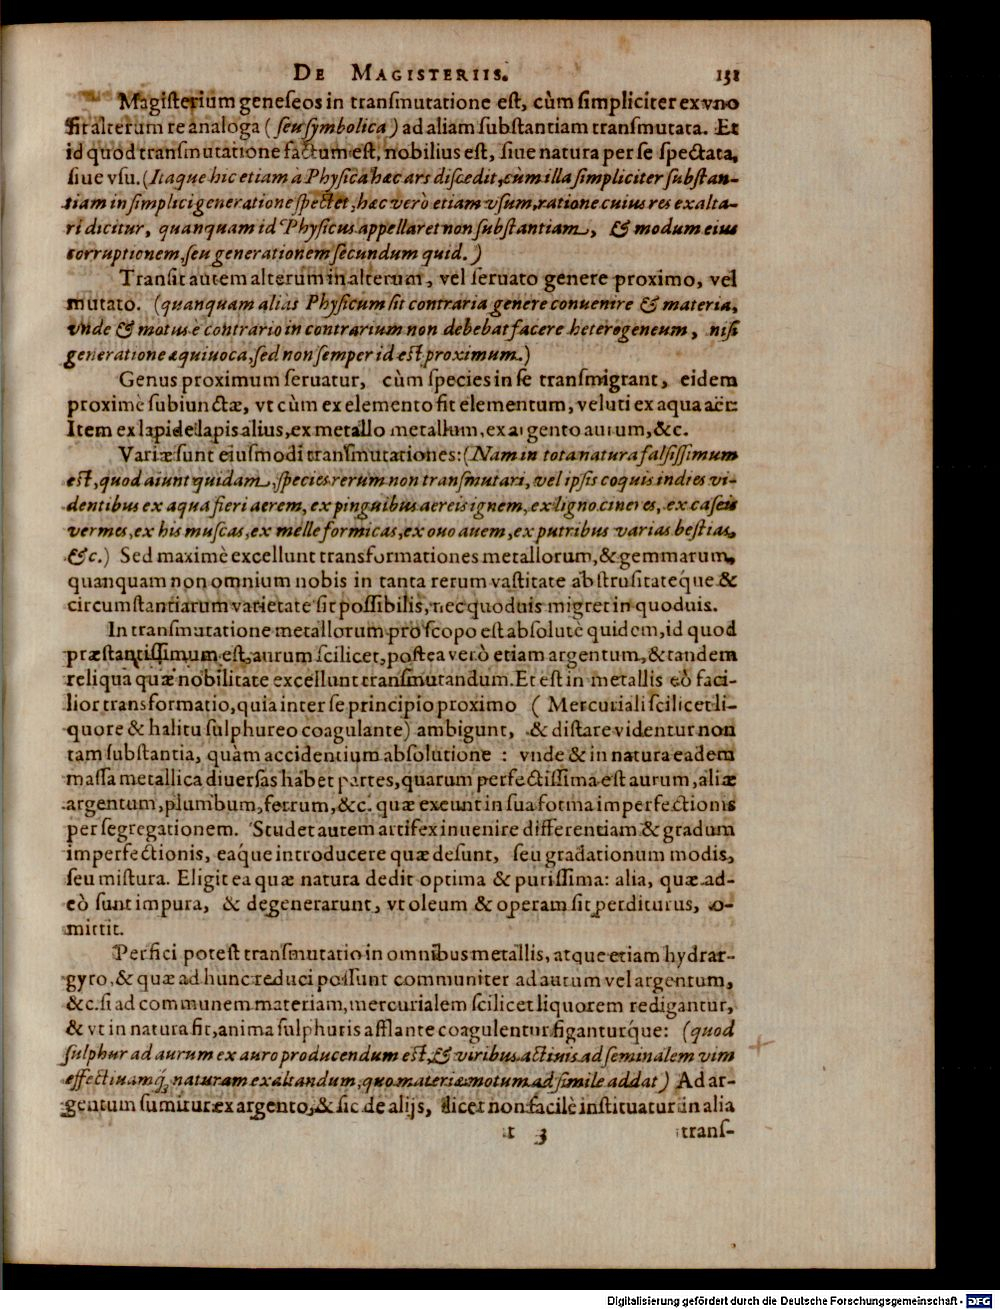 DE MAGISTERIIS. 151
Magiſterium geneſeos in tranſmutatione eſt, cùm ſimpliciter ex vno
fit alterum re analoga (ſeu ſymbolica) ad aliam ſubſtantiam tranſmutata. Et
id quod tranſmutatione factum eſt, nobilius eſt, ſiue natura per ſe ſpectata,
ſiue vſu. (Itaque hic etiam à Phyſica hæc ars diſcedit, cùm illa ſimpliciter ſubſtan-
tiam in ſimplici generatione ſpectet, hæc verò etiam vſum, ratione cuius res exalta-
ri dicitur, quanquam id Phyſicus appellaret non ſubſtantiam, & modum eius
corruptionem, ſeu generationem ſecundum quid.)
Tranſit autem alterum in alterum, vel ſeruato genere proximo, vel
mutato. (quanquam alias Phyſicum ſit contraria genere conuenire & materia,
vnde & motus è contrario in contrarium non debebat facere heterogeneum, niſi
generatione æquiuoca, ſed non ſemper id eſt proximum.)
Genus proximum ſeruatur, cùm ſpecies in ſe tranſmigrant, eidem
proximè ſubiunctæ, vt cùm ex elemento fit elementum, veluti ex aqua aër:
Item ex lapide lapis alius, ex metallo metallum, ex argento aurum, &c.
Variæ ſunt eiuſmodi tranſmutationes: (Nam in tota natura falſiſſimum
eſt, quod aiunt quidam, ſpecies rerum non tranſmutari, vel ipſis coquis indies vi-
dentibus ex aqua fieri aerem, ex pinguibus aereis ignem, ex ligno cineres, ex caſeis
vermes, ex his muſcas, ex melle formicas, ex ouo auem, ex putribus varias beſtias,
&c.) Sed maximè excellunt transformationes metallorum, & gemmarum,
quanquam non omnium nobis in tanta rerum vaſtitate abſtruſitateq́ue &
circumſtantiarum varietate ſit poſſibilis, nec quoduis migret in quoduis.
In tranſmutatione metallorum pro ſcopo eſt abſolutè quidem, id quod
præſtantiſſimum eſt, aurum ſcilicet, poſtea verò etiam argentum, & tandem
reliqua quæ nobilitate excellunt tranſmutandum. Et eſt in metallis eò faci-
lior transformatio, quia inter ſe principio proximo (Mercuriali ſcilicet li-
quore & halitu ſulphureo coagulante) ambigunt, & diſtare videntur non
tam ſubſtantia, quàm accidentium abſolutione : vnde & in natura eadem
maſſa metallica diuerſas habet partes, quarum perfectiſſima eſt aurum, aliæ
argentum, plumbum, ferrum, &c. quæ exeunt in ſua forma imperfectionis
per ſegregationem. Studet autem artifex inuenire differentiam & gradum
imperfectionis, eaq́ue introducere quæ deſunt, ſeu gradationum modis,
ſeu miſtura. Eligit ea quæ natura dedit optima & puriſſima: alia, quæ ad-
eò ſunt impura, & degenerarunt, vt oleum & operam ſit perditurus, o-
mittit.
Perfici poteſt tranſmutatio in omnibus metallis, atque etiam hydrar-
gyro, & quæ ad hunc reduci poſſunt communiter ad aurum vel argentum,
&c. ſi ad communem materiam, mercurialem ſcilicet liquorem redigantur,
& vt in natura fit, anima ſulphuris afflante coagulentur figanturq́ue: (quod
ſulphur ad aurum ex auro producendum eſt, & viribus actiuis ad ſeminalem vim
effectiuamq́; naturam exaltandum, quo materiæ motum ad ſimile addat) Ad ar-
gentum ſumitur ex argento, & ſic de alijs, licet non facilè inſtituatur in alia
t 3 tranſ-
Digitalisierung gefördert durch die Deutsche Forschungsgemeinschaft - DFG